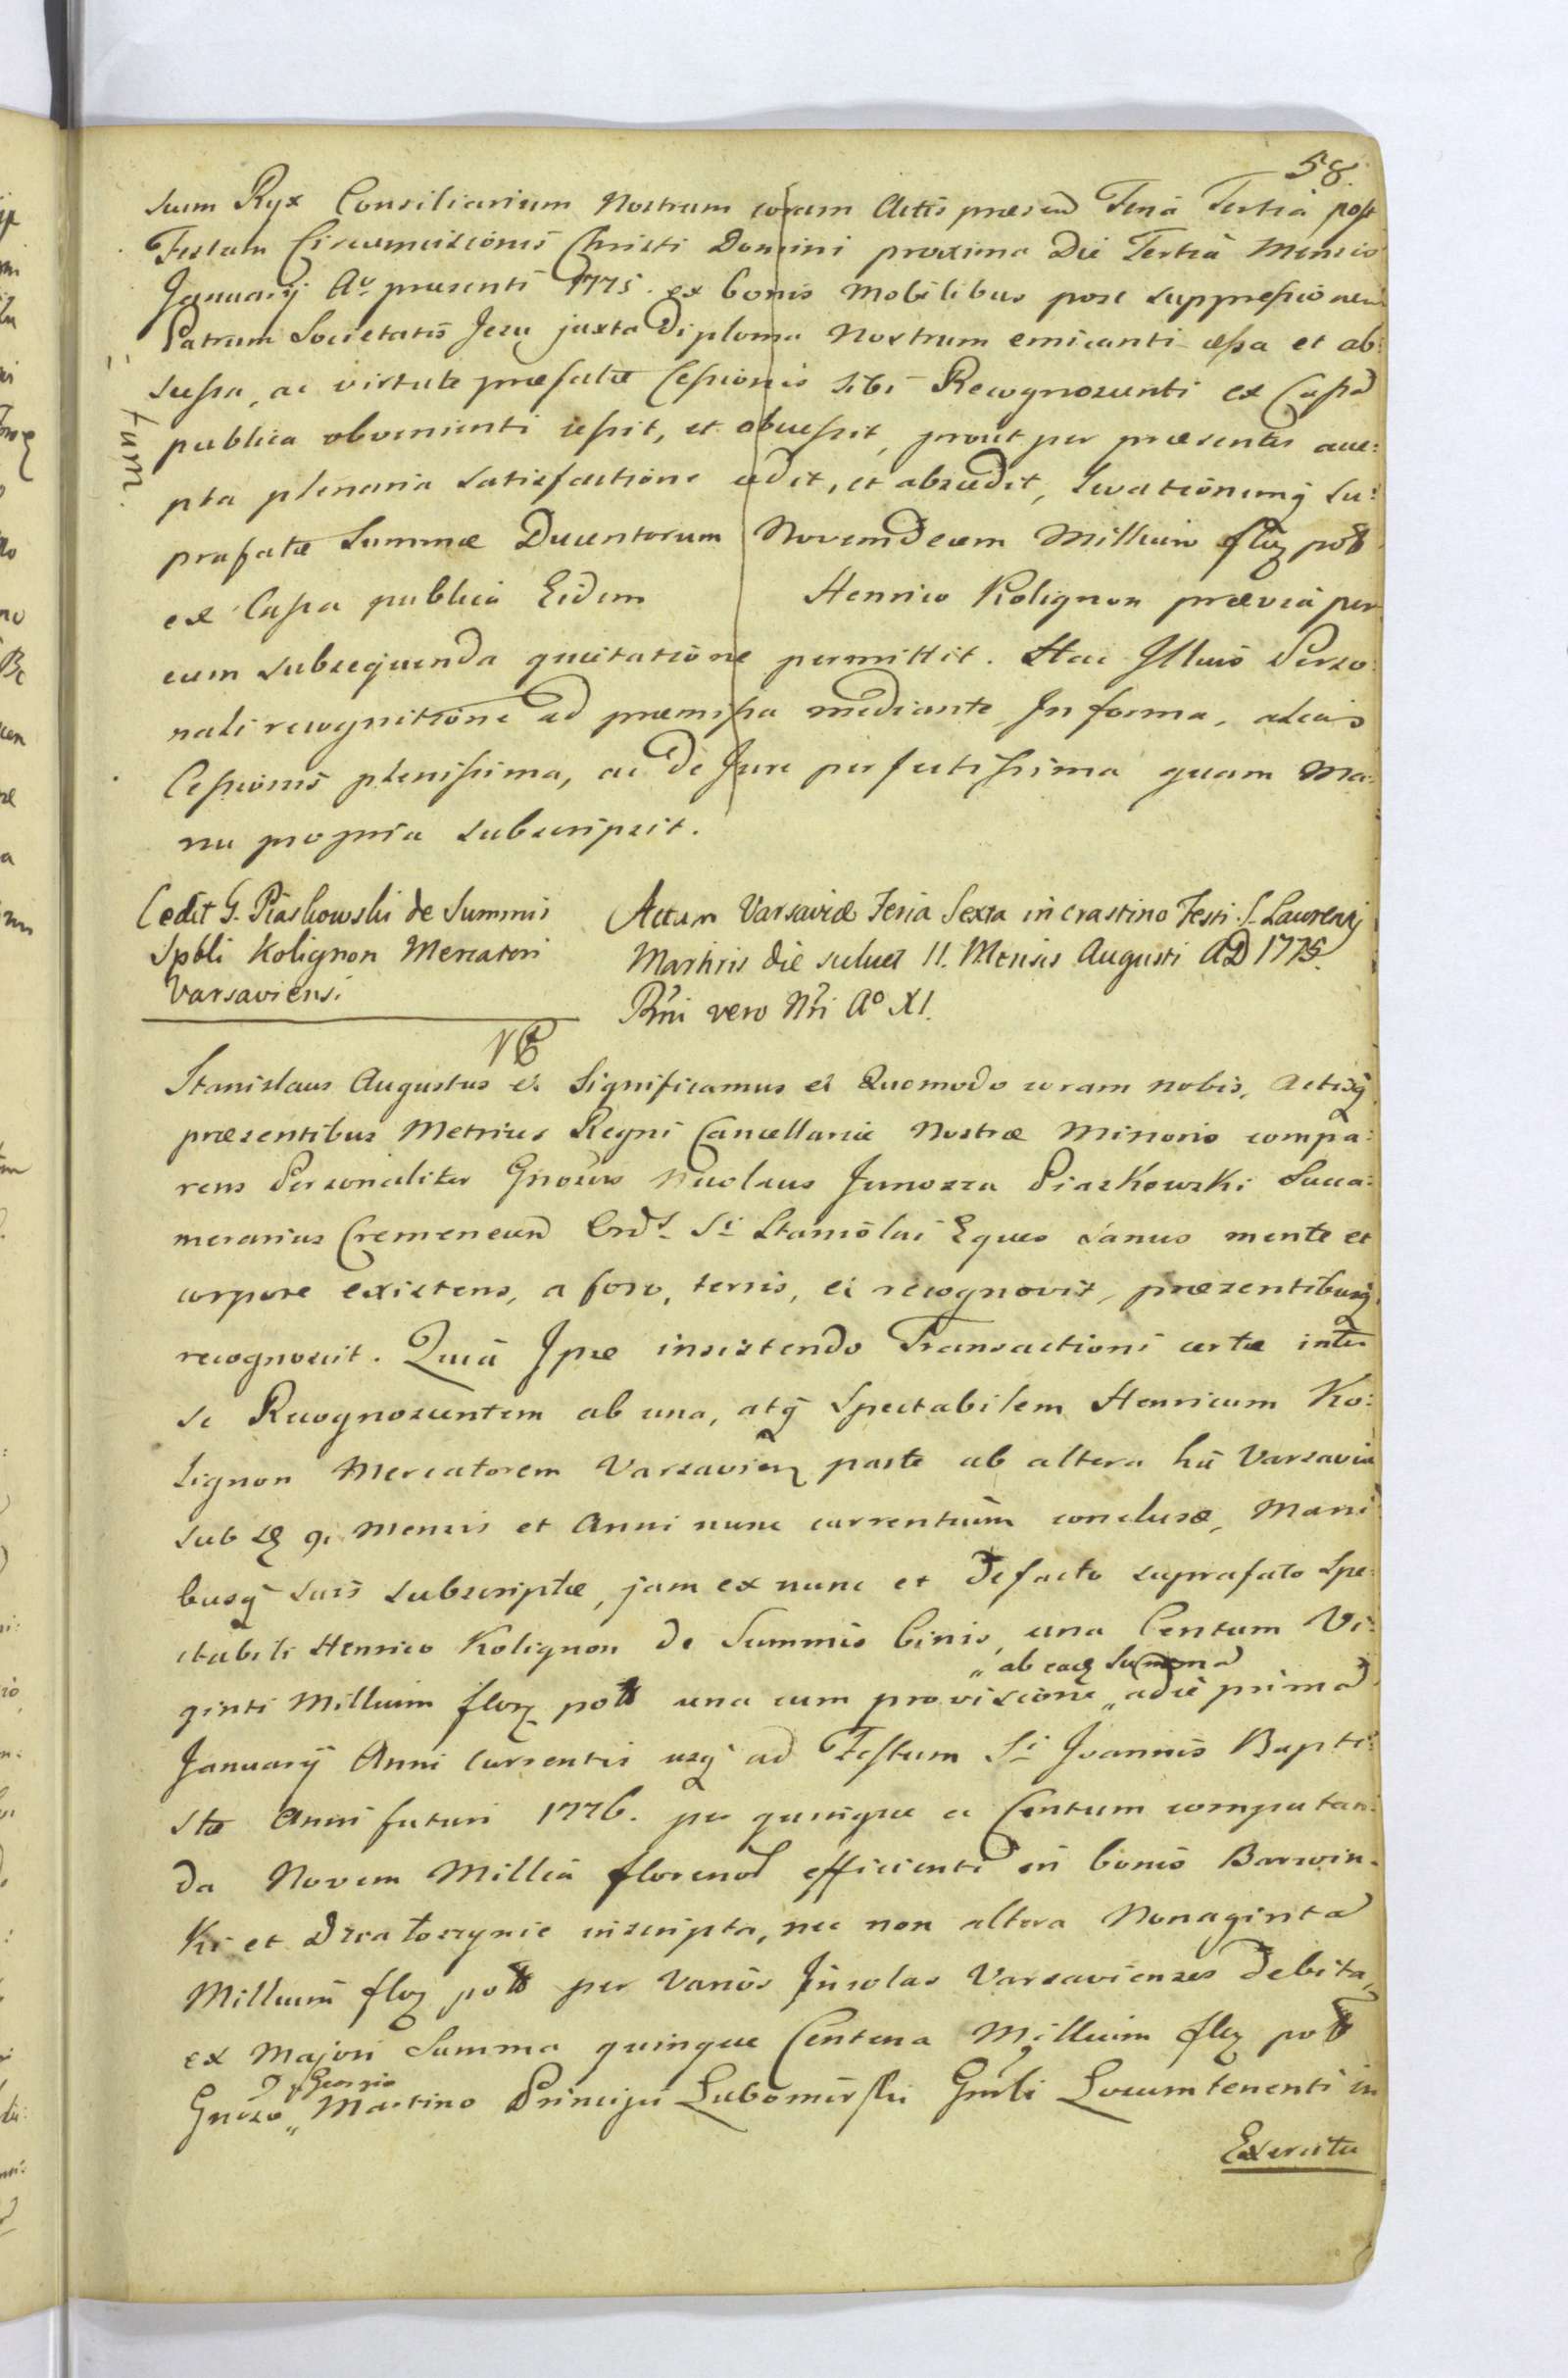 58.
suum Ryx Consiliarium Nostrum coram Actis præsend Feria Tertia post
Festum Circumcisionis Christi Domini proxima Die Tertia Mensis
Januarij Ao præsenti 1775. ex bonis mobilibus post suppressionem
Patrum Societatis Jesu juxta Diploma Nostrum emicanti cessa et ab:
scessa, ac virtute præfatæ Cessionis sibi Recognoscenti ex Cassa
publica obvenienti cessit, et abscessit, prout per præsentes acce:
pta plenaria satisfactione cedit, et abscedit, levationemq su:
prafatæ Summæ Ducentorum Novemdecem Millium flor pol
ex Cassa publica Eidem Henrico Kolignon prævia per
eum subsequenda quietatione permittit. Hac Illius Perso:
nali recognitione ad præmissa mediante In forma, alias
Cessionis plenissima, ac de Jure perfectissima quam Ma:
nu propria subscripsit.
tum
Cedit G. Piaskowski de Summis
Spbli Kolignon Mercatori
Varsaviensi
Actum Varsaviæ Feria Sexta in crastino Festi S. Laurentij
Martiris die scilicet 11. Mensis Augusti AD 1775.
Rni vero Nri Ao XI.
Stanislaus Augustus et Significamus et Quomodo coram nobis, Actisq
præsentibus Metrices Regni Cancellariæ Nostræ Minoris compa:
rens Personaliter Gnosus Nicolaus Junosza Piaskowski Succa:
merarius Cremenecen Ord S. Stanislai Eques sanus mente et
corpore existens, a foro, terris, et recognovit, præsentibusq
recognoscit. Quia Ipse insistendo Transactioni certæ inter
se Recognoscentem ab una, atq Spectabilem Henricum Ko:
lignon Mercatorem Varsavien parte ab altera hic Varsaviæ
sub 9. Mensis et Anni nunc currentium conclusæ, Mani
busq suis subscriptæ, jam ex nunc et de facto suprafato Spe:
ctabili Henrico Kolignon de Summis binis, una Centum Vi:
„ ab eadem Summa
ginti Millium flor pol una cum provisione „ a die prima
Januarij Anni Currentis usq ad Festum Sti Joannis Bapti:
stæ Anni futuri 1776. per quinque a Centum computan:
da Novem Millia florenos efficienti in bonis Barwin:
ki et inscripta, nec non altera Nonaginta
Millium flor pol per varios Insolas Varsavienses debita,
ex Majori Summa quinque Centena Millium flor pol
Georgio
„ Martino Principi Lubomirski Gnrli Locumtenenti in
Exercitu